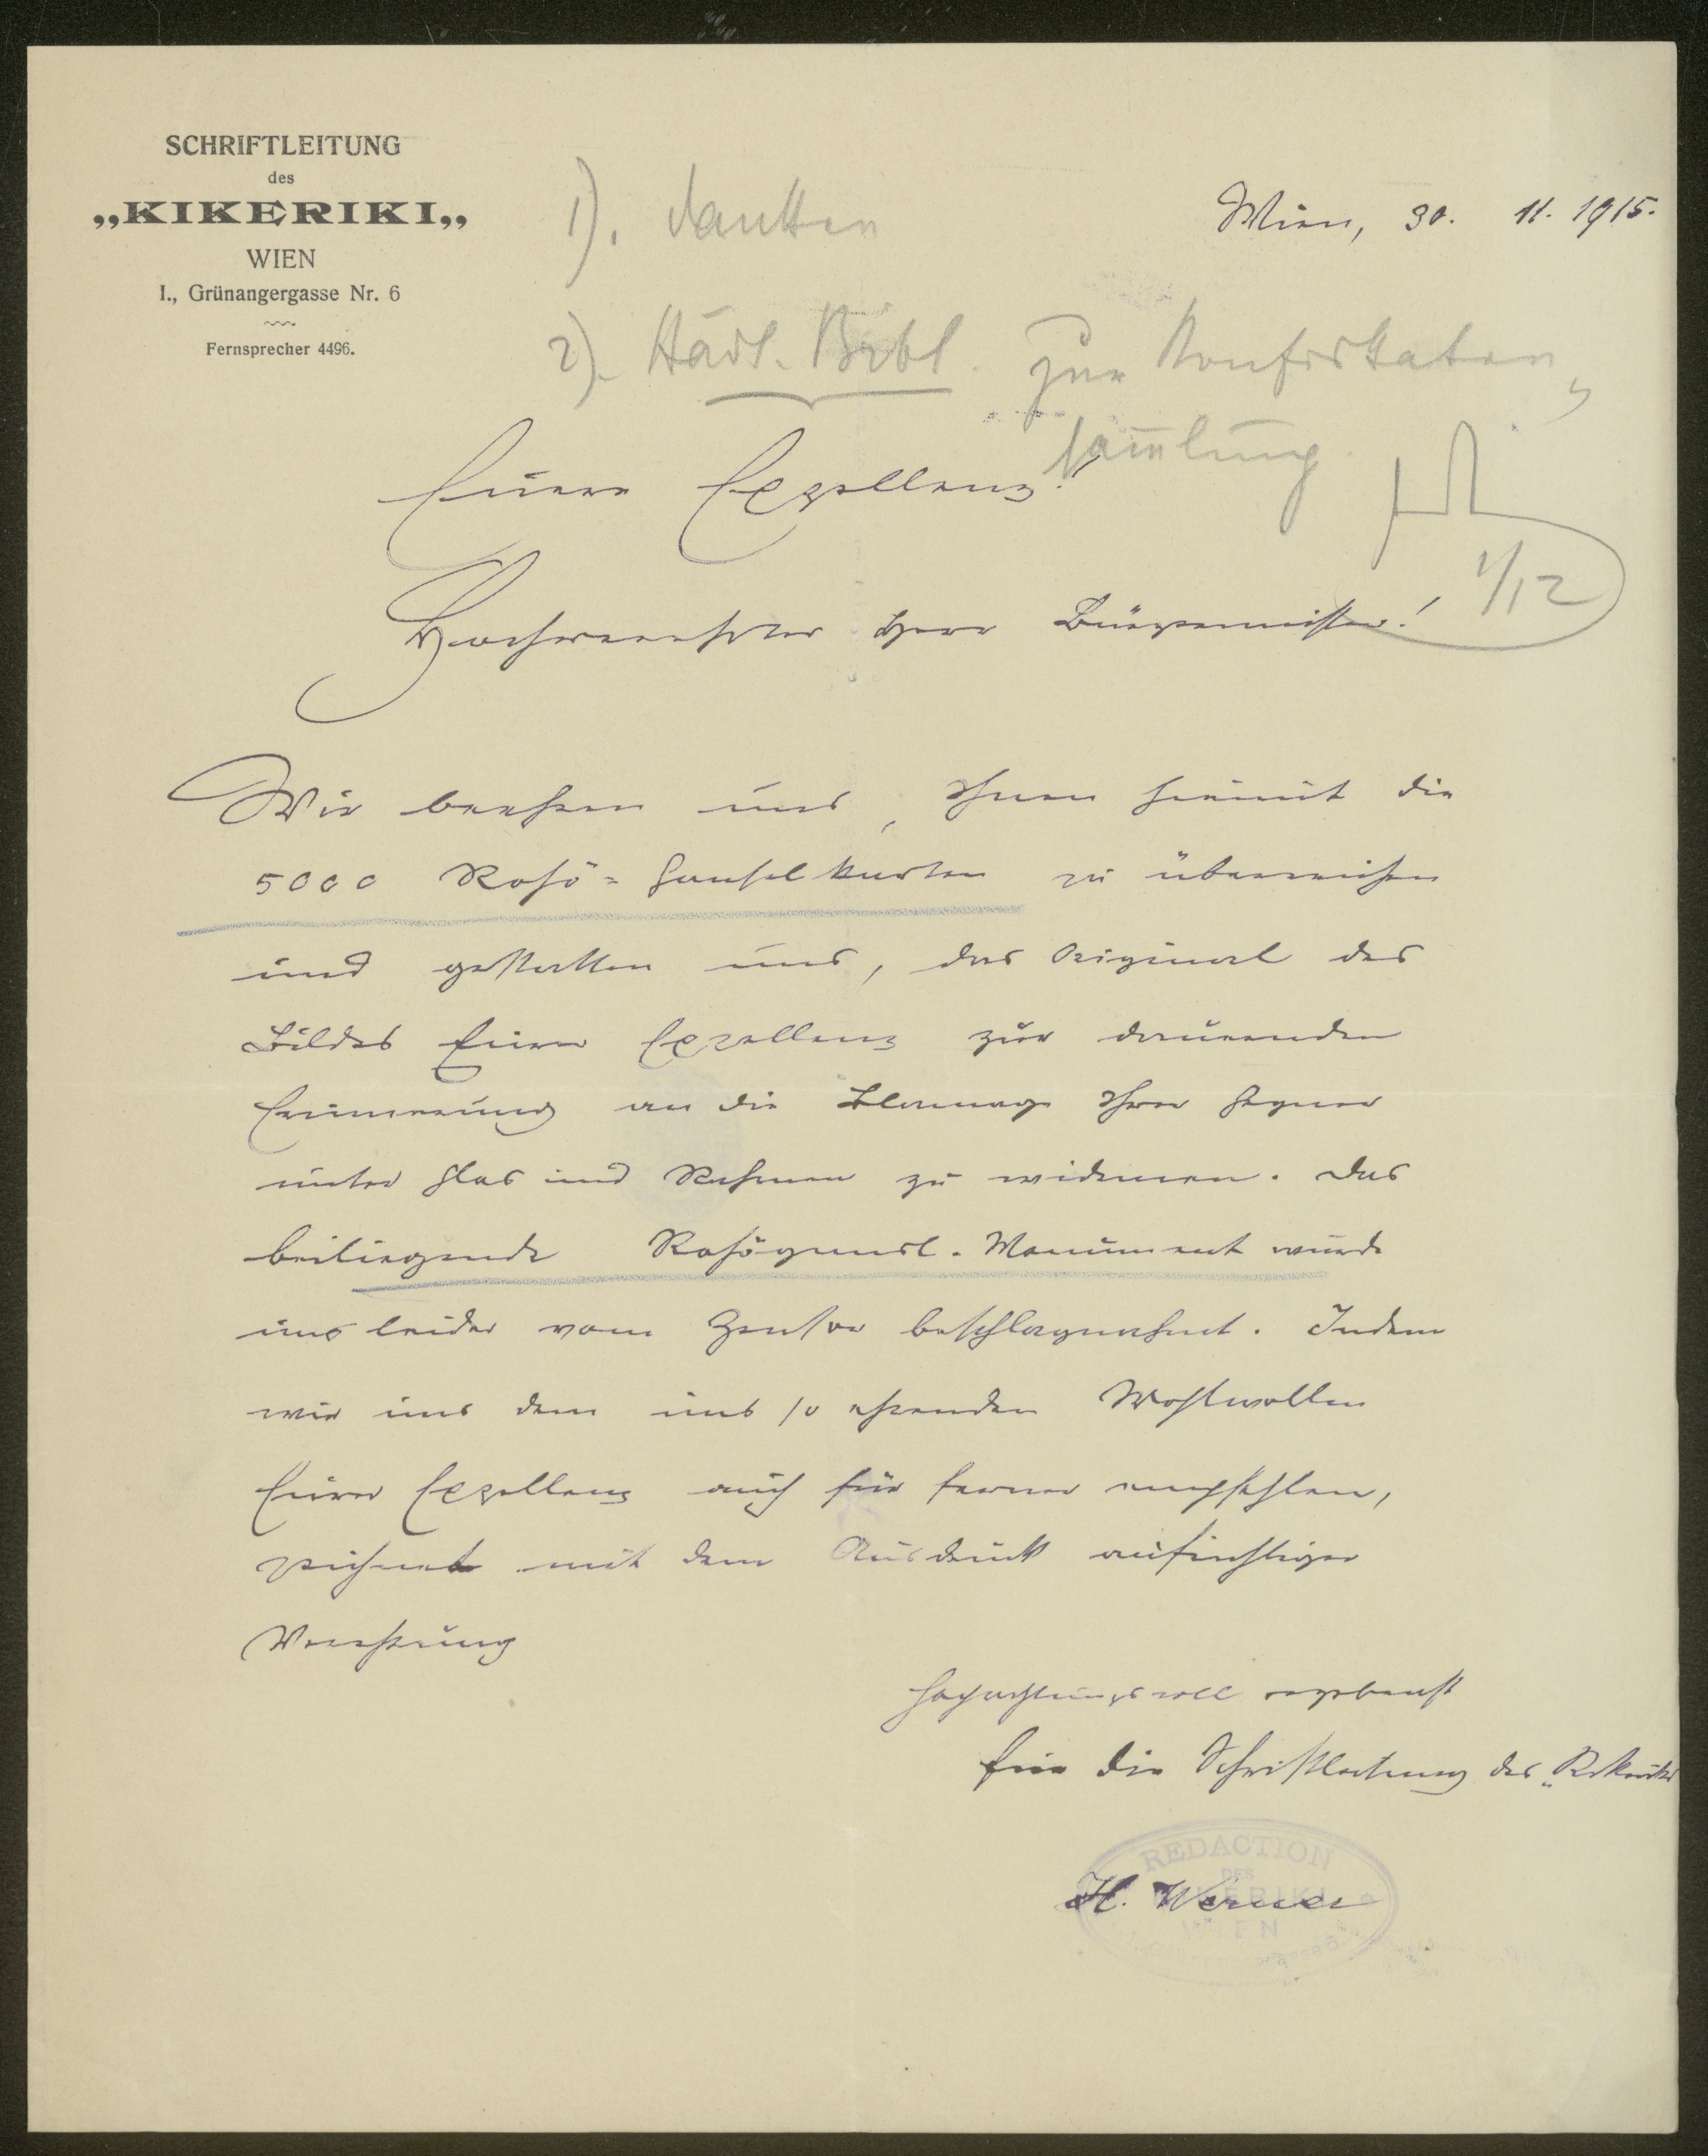 SCHRIFTLEITUNG
des
„KIKERIKI„
WIEN
I., Grünangergasse Nr. 6
Fernsprecher 4496.
Wien, 30. 11. 1915.
1). danken
2). Städt. Bibl. zur Konfiskaten
sam̄lung
1/12
Euere Exzellenz!
Hochverehrter Herr Bürgermeister!
Wir beehren uns, Ihnen hiemit die
5000 Rohö-Gansel karten zu überreichen
und gestatten uns, das Original des
Bildes Eurer Exzellenz zur dauernden
Erinnerung an die Blamage Ihrer Gegner
unter Glas und Rahmen zu widmen. Das
beiliegende Rohögansl-Monument wurde
uns leider vom Zensor beschlagnahmt. Indem
wir uns dem uns so ehrenden Wohlwollen
Eurer Exzellenz auch für ferner empfehlen,
zeichnet mit dem Ausdruck aufrichtiger
Verehrung
hochachtungsvoll ergebenst
für die Schriftleitung des „Kikeriki
H. Werner
REDACTION
DES
KIKERIKI
WIEN